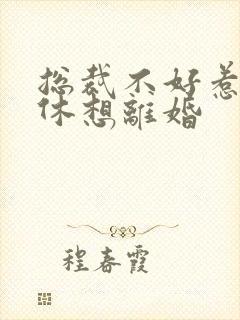 総裁不好惹
休想離婚
程春霞